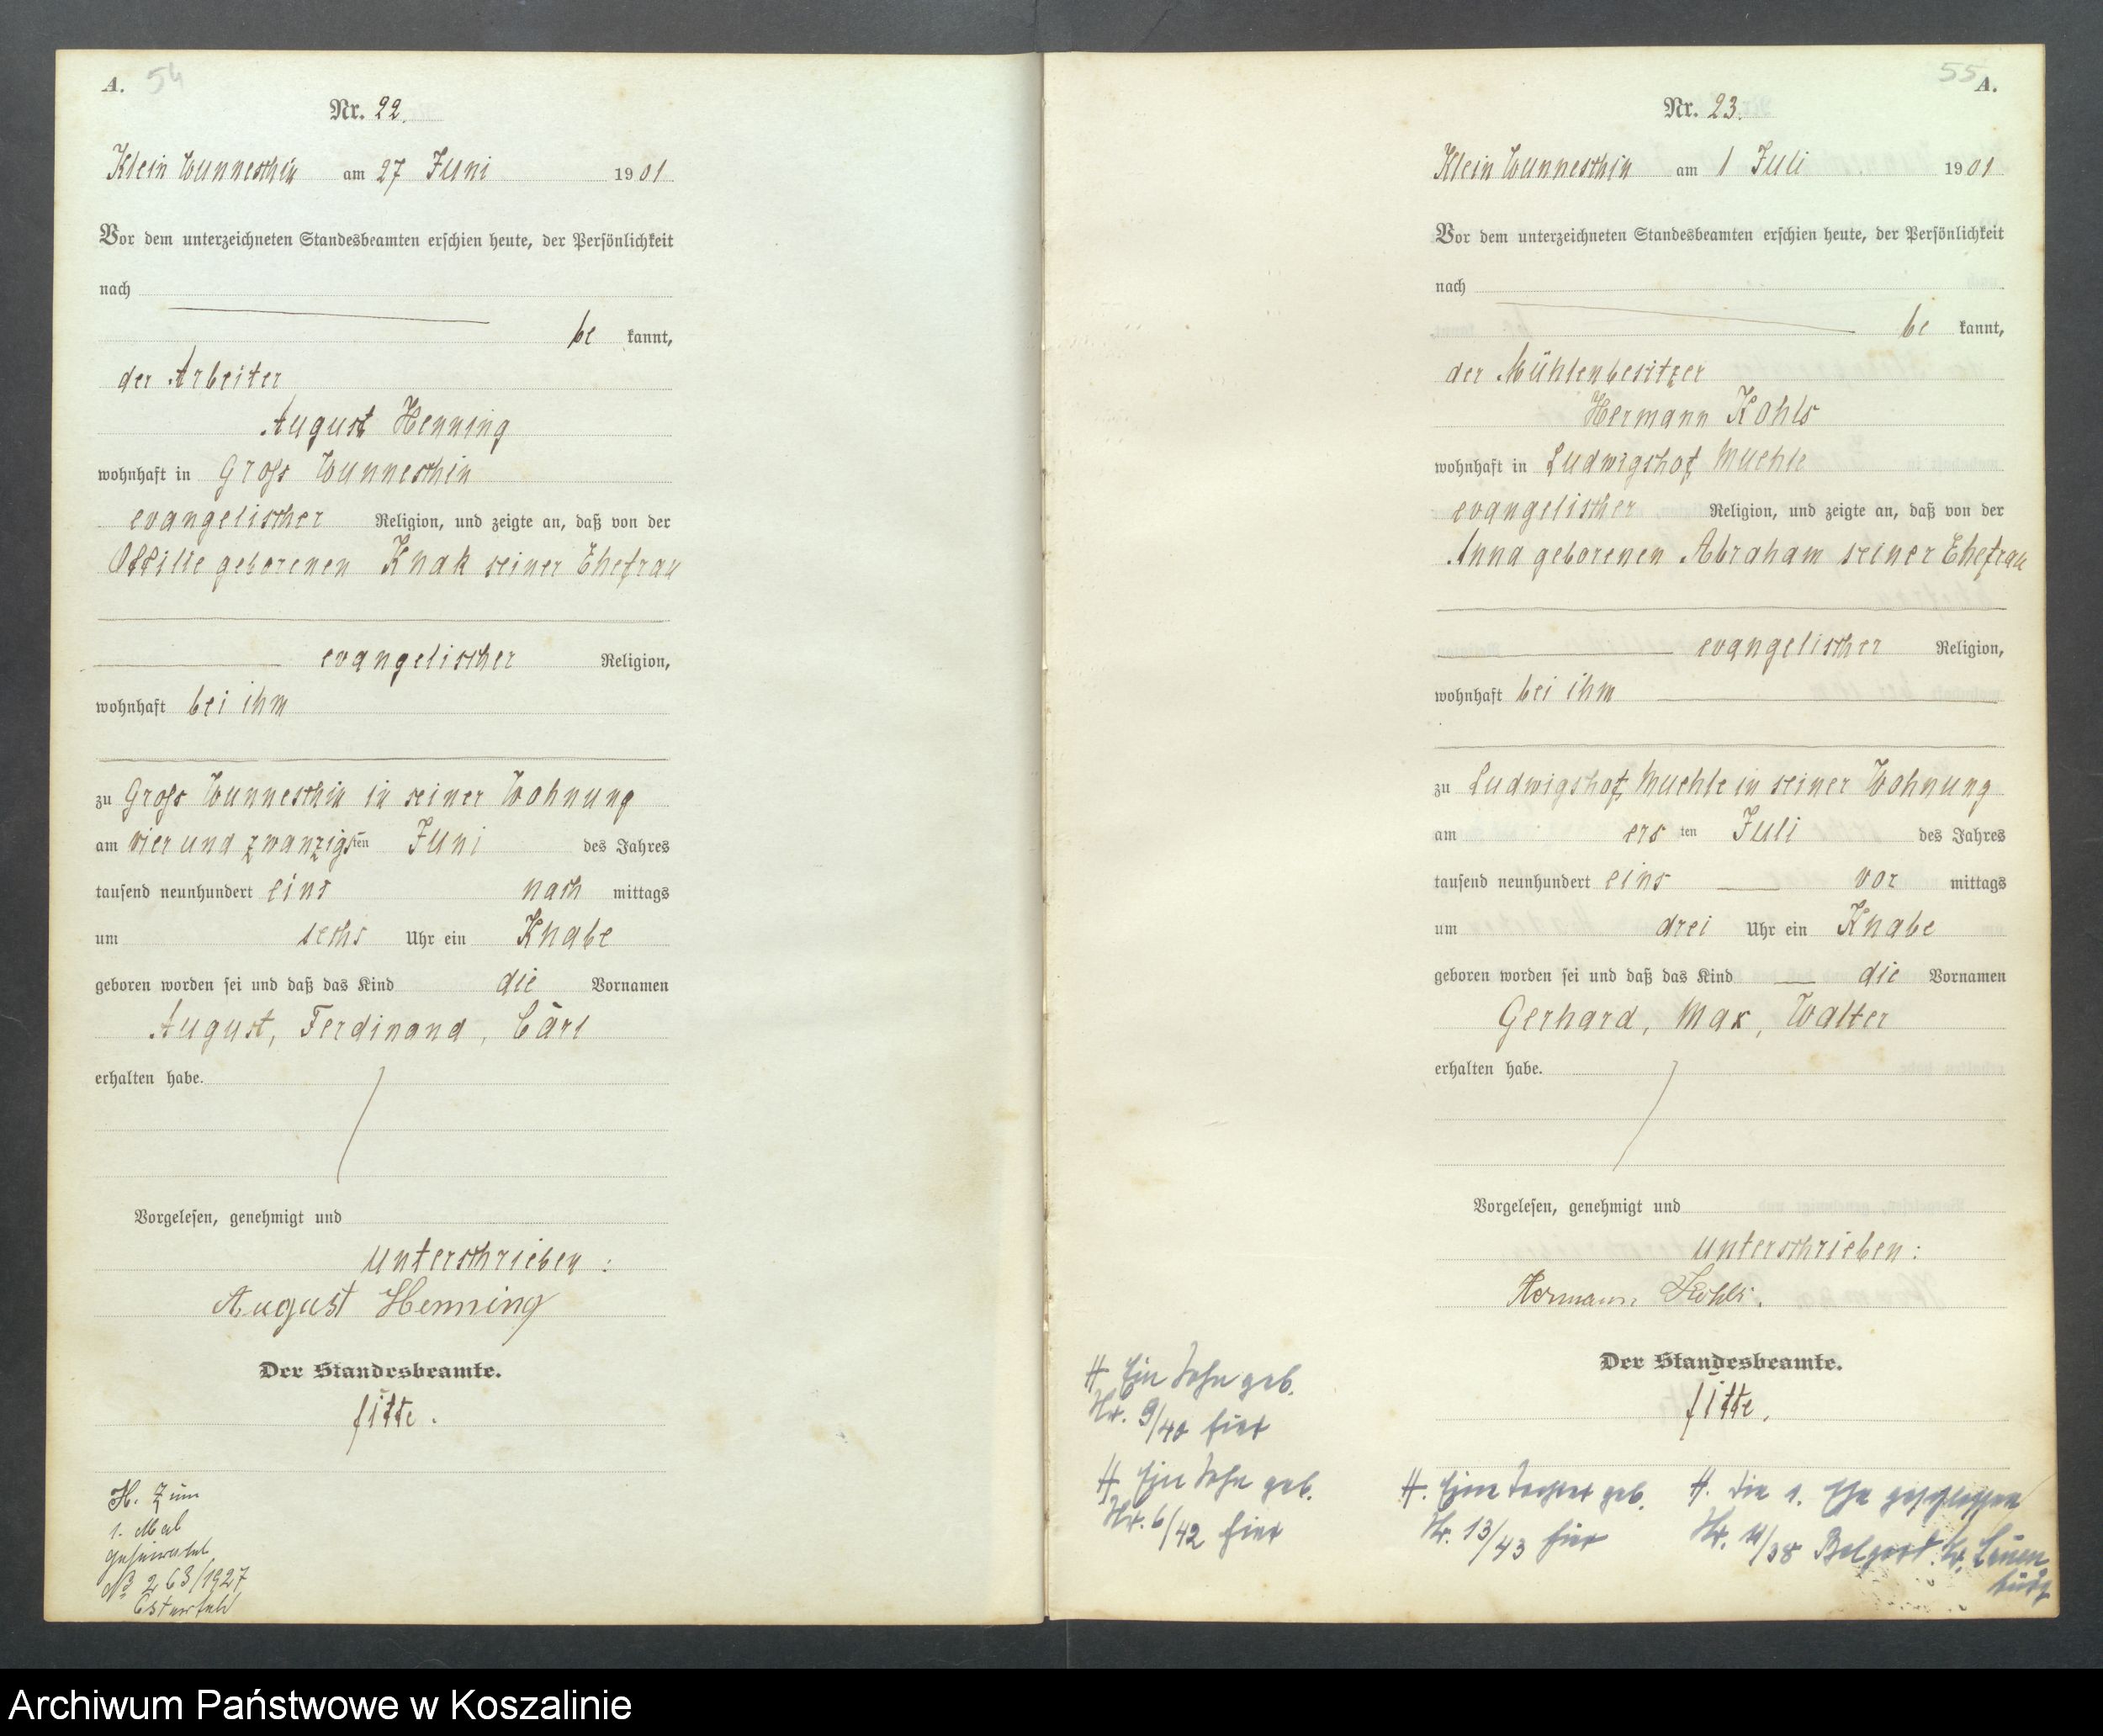 A. 54
Nr. 22.
Klein Wunneschin am 27 Juni 1901
Vor dem unterzeichneten Standesbeamten erschien heute, der Persönlichkeit
nach
be kannt,
der Arbeiter
August Henning
wohnhaft in Groß Wunneschin
evangelischer Religion, und zeigte an, daß von der
Ottilie geborenen Knak seiner Ehefrau
evangelischer Religion,
wohnhaft bei ihm
zu Groß Wunneschin in seiner Wohnung
am vier und zwanzigsten Juni des Jahres
tausend neunhundert eins nach mittags
um sechs Uhr ein Knabe
geboren worden sei und daß das Kind die Vornamen
August, Ferdinand, Carl
erhalten habe.
Vorgelesen, genehmigt und
unterschrieben:
August Henning
Der Standesbeamte.
fitte.
H. Zum
1. Mal
geheiratet
No 263/1927
Osterfeld
55 A.
Nr. 23.
Klein Wunneschin am 1 Juli 1901
Vor dem unterzeichneten Standesbeamten erschien heute, der Persönlichkeit
nach
be kannt,
der Mühlenbesitzer
Hermann Kohls
wohnhaft in Ludwigshof Muehle
evangelischer Religion, und zeigte an, daß von der
Anna geborenen Abraham seiner Ehefrau
evangelischer Religion,
wohnhaft bei ihm
zu Ludwigshof Muehle in seiner Wohnung
am ersten Juli des Jahres
tausend neunhundert eins vor mittags
um drei Uhr ein Knabe
geboren worden sei und daß das Kind die Vornamen
Gerhard, Max, Walter
erhalten habe.
Vorgelesen, genehmigt und
unterschrieben:
Hermann Kohls.
Der Standesbeamte.
fitte.
H. Ein Sohn geb.
Nr. 9/40 hier
H. Ein Sohn geb.
Nr. 6/42 hier
H. Eine Tochter geb.
Nr. 13/43 hier
H. die 1. Ehe geschlossen
Nr. /38 Belgard Kr. Lauen
burg
Archiwum Państwowe w Koszalinie